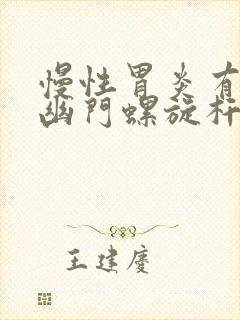 慢性胃炎有
幽门螺旋杆
王建庆